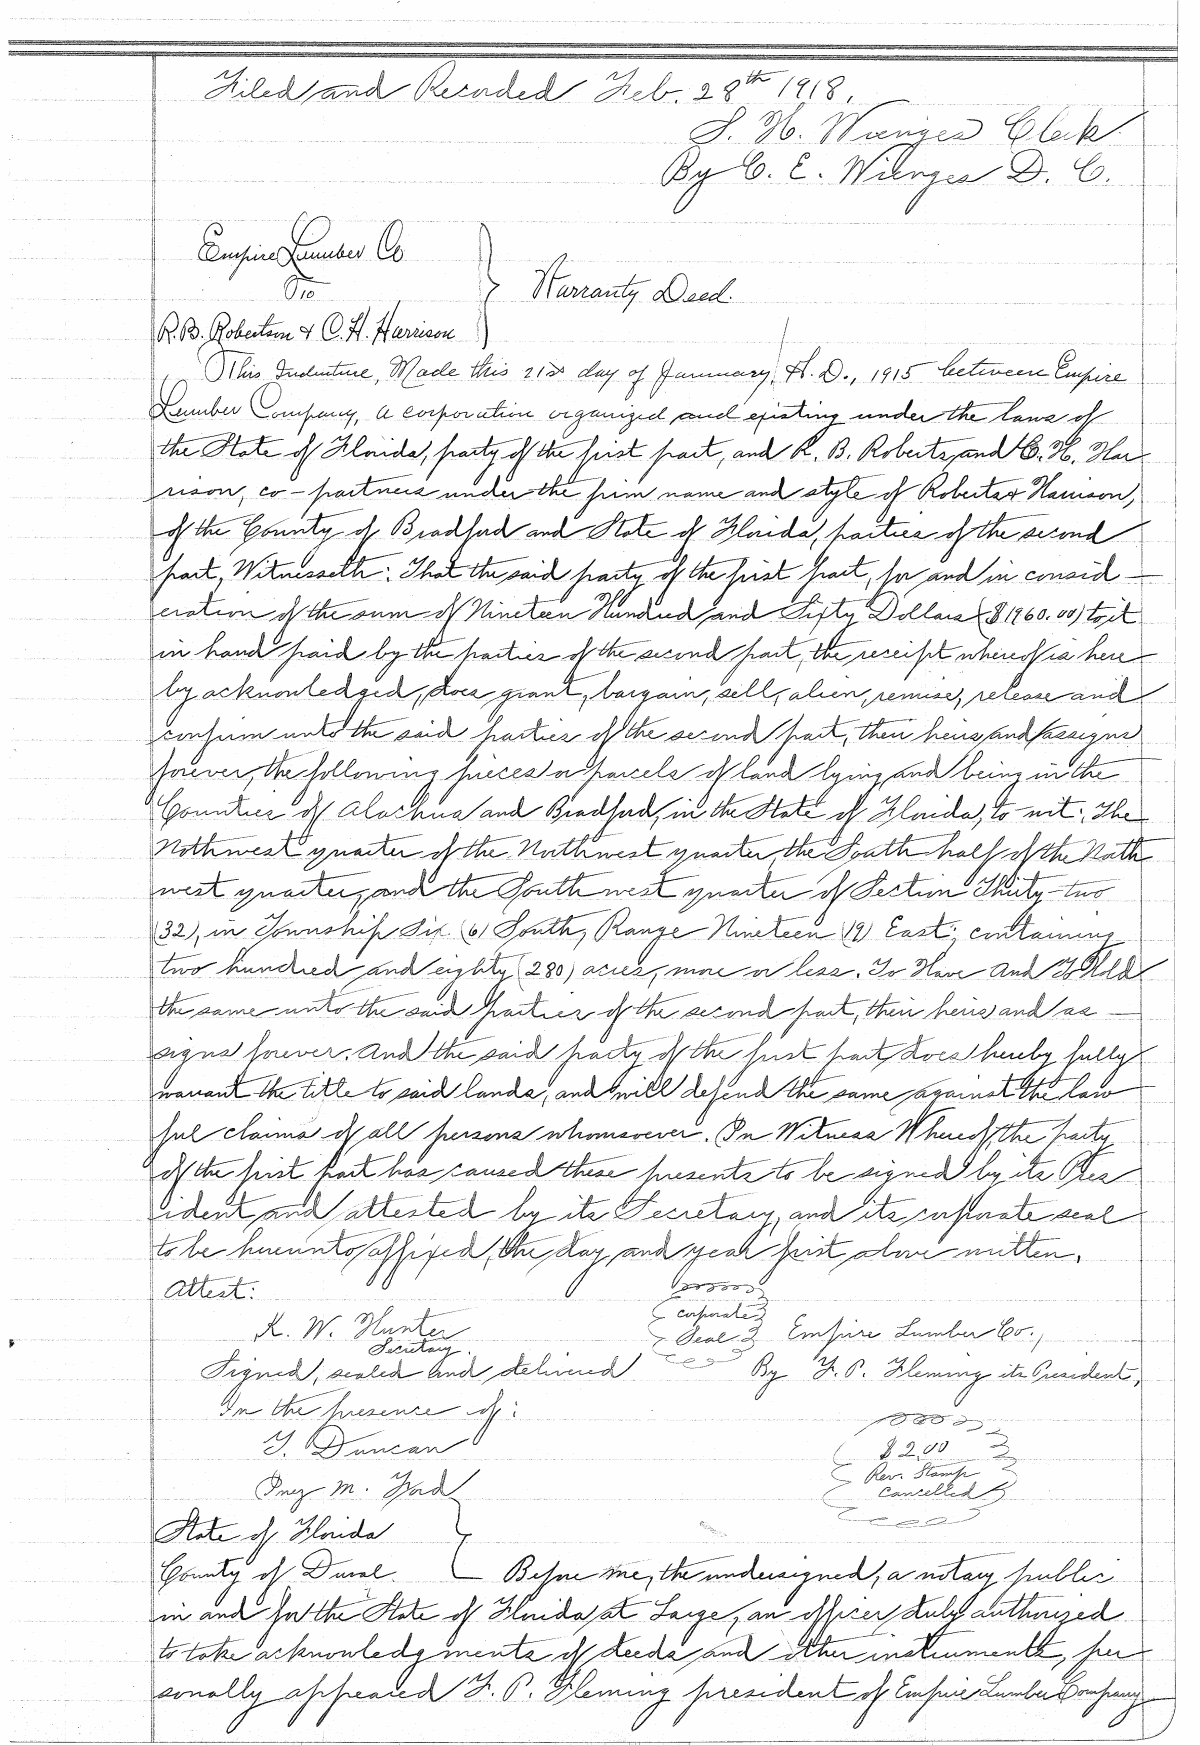 Filed and Recorded Feb. 28th 1918.
S. H. Wienges Clerk
By C. E. Wienges D. C.
Empire Lumber Co
To
Warranty Deed.
R. B. Robertson & C. H. Harrison
This Indenture, Made this 21st day of January, A. D., 1915 between Empire
Lumber Company, a corporation organized and existing under the laws of
the State of Florida, party of the first part, and R. B. Roberts, and C. H. Har
rison, co-partners under the firm name and style of Roberts & Harrison,
of the County of Bradford and State of Florida, parties of the second
part, Witnesseth: That the said party of the first part, for and in consid-
eration of the sum of Nineteen Hundred and Fifty Dollars ($1960.00) to it
in hand paid by the parties of the second part, the receipt whereof is here
by acknowledged, does grant, bargain, sell, alien, remise, release and
confirm unto the said parties of the second part, their heirs and assigns
forever, the following pieces or parcels of land lying and being in the
Counties of Alachua and Bradford, in the State of Florida, to wit: The
Nothwest quarter of the Northwest quarter, the South half of the North
west quarter, and the Southwest quarter of Section Thirty-two
(32), in Township Six (6) South, Range Nineteen (19) East; containing
two hundred and eighty (280) acres, more or less. To Have And To Hold
the same unto the said parties of the second part, their heirs and as-
signs forever. And the said party of the first part does hereby fully
warrant the title to said lands, and will defend the same against the law
ful claims of all persons whomsoever. In Witness Whereof, the party
of the first part has caused these presents to be signed by its Pres
ident and attested by its Secretary, and its corporate seal
to be hereunto affixed, the day and year first above written.
Attest:
corporate
K. W. Hunter
Seal
Empire Lumber Co.,
Secretary.
Signed, sealed and delivered
By F. P. Fleming its President,
In the presence of:
T. Duncan
$2.00
Rev. Stamp
Inez M.
cancelled
State of Florida
County of Duval.
Before me, the undersigned, a notary public
in and for the State of Florida at Large, an officer duly authorized
to take acknowledgments of deeds and other instruments, per
sonally appeared F. P. Fleming president of Empire Lumber Company